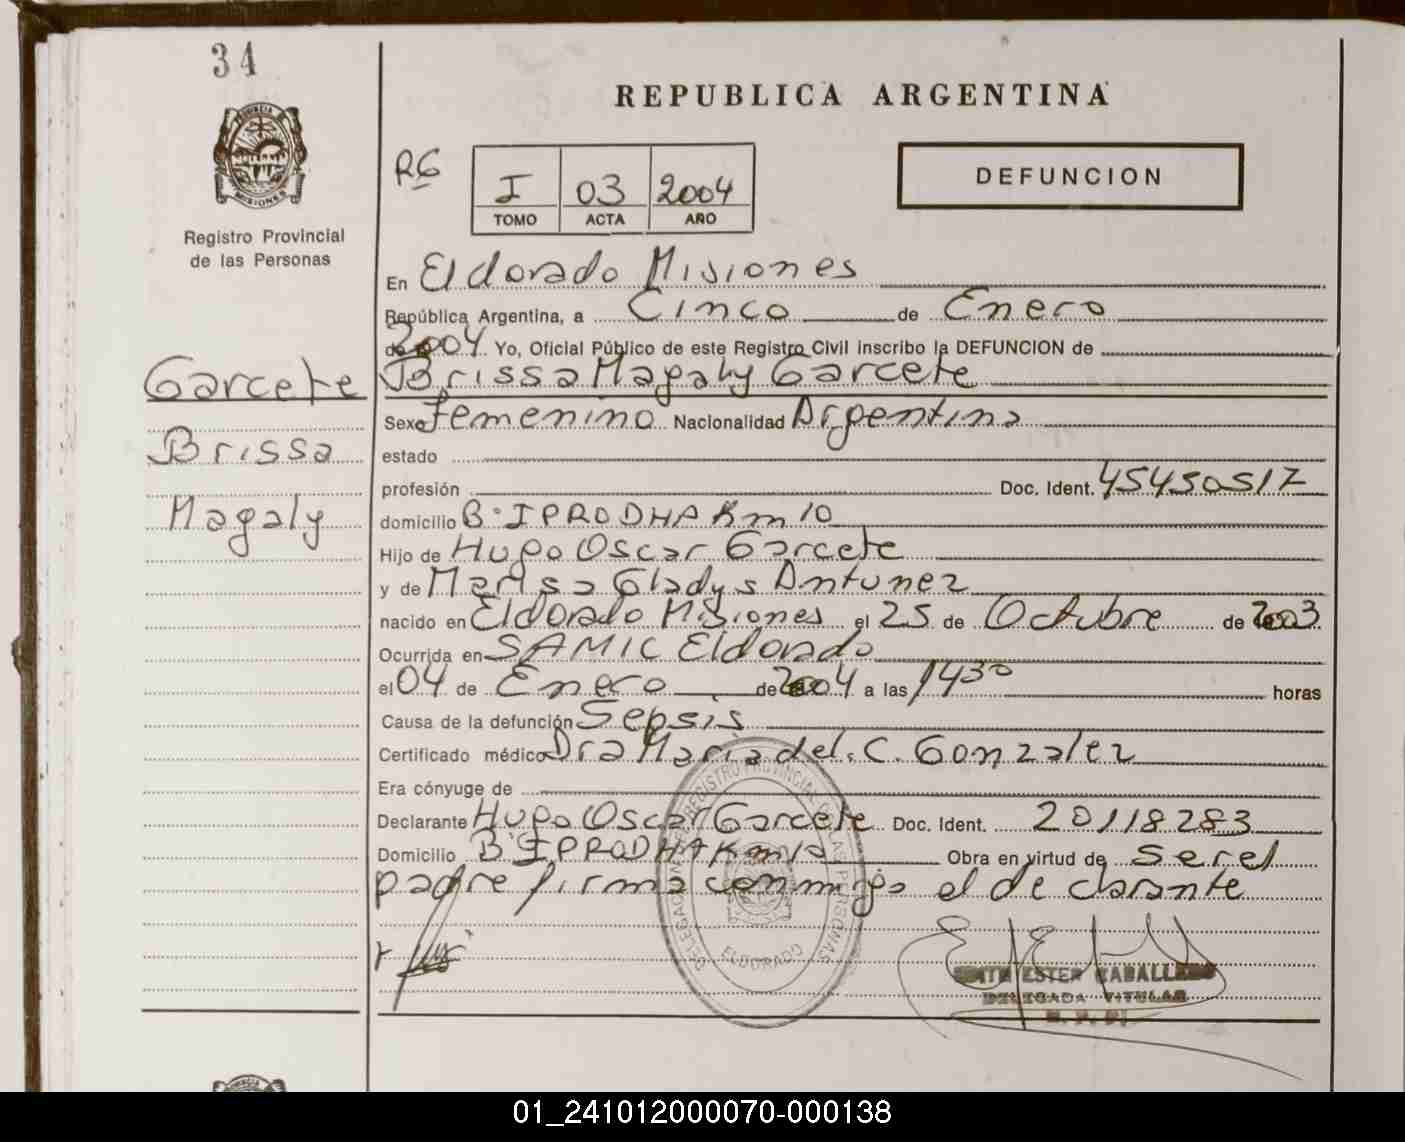 34
REPUBLICA ARGENTINA
PROVINCIA
MISIONES
Registro Provincial
de las Personas
RG
I 03 2004
TOMO ACTA AÑO
DEFUNCION
En Eldorado Misiones
República Argentina, a Cinco de Enero
de 2004 Yo, Oficial Público de este Registro Civil inscribo la DEFUNCION de
Garcete Brissa Magaly Garcete
Sexo femenino Nacionalidad Argentina
Brissa
estado
profesión Doc. Ident. 45450517
Magaly
domicilio B° IPRODHA Km 10
Hijo de Hugo Oscar Garcete
y de Marisa Gladys Antunez
nacido en Eldorado Misiones el 25 de Octubre de 2003
Ocurrida en SAMIC Eldorado
el 04 de Enero de 2004 a las 1430 horas
Causa de la defunción Sepsis
Certificado médico Dra Maria del. C. Gonzalez
Era cónyuge de
Declarante Hugo Oscar Garcete Doc. Ident. 20118283
Domicilio B° IPRODHA Km 10 Obra en virtud de ser el
padre firma conmigo el declarante
REGISTRO PROVINCIAL DE LAS PERSONAS
ELDORADO
EDITH ESTER CABALLERO
DELEGADA TITULAR
01_241012000070-000138